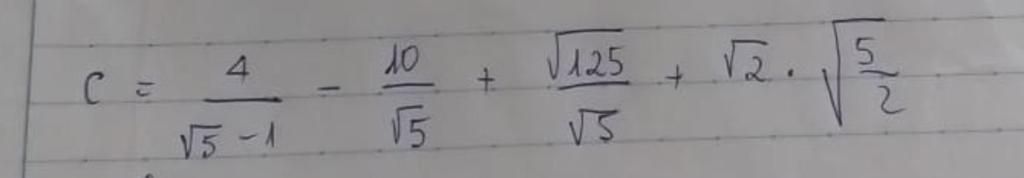 C = 4/(√5 - 1) - 10/√5 + √125/√5 + √2 · √(5/2)